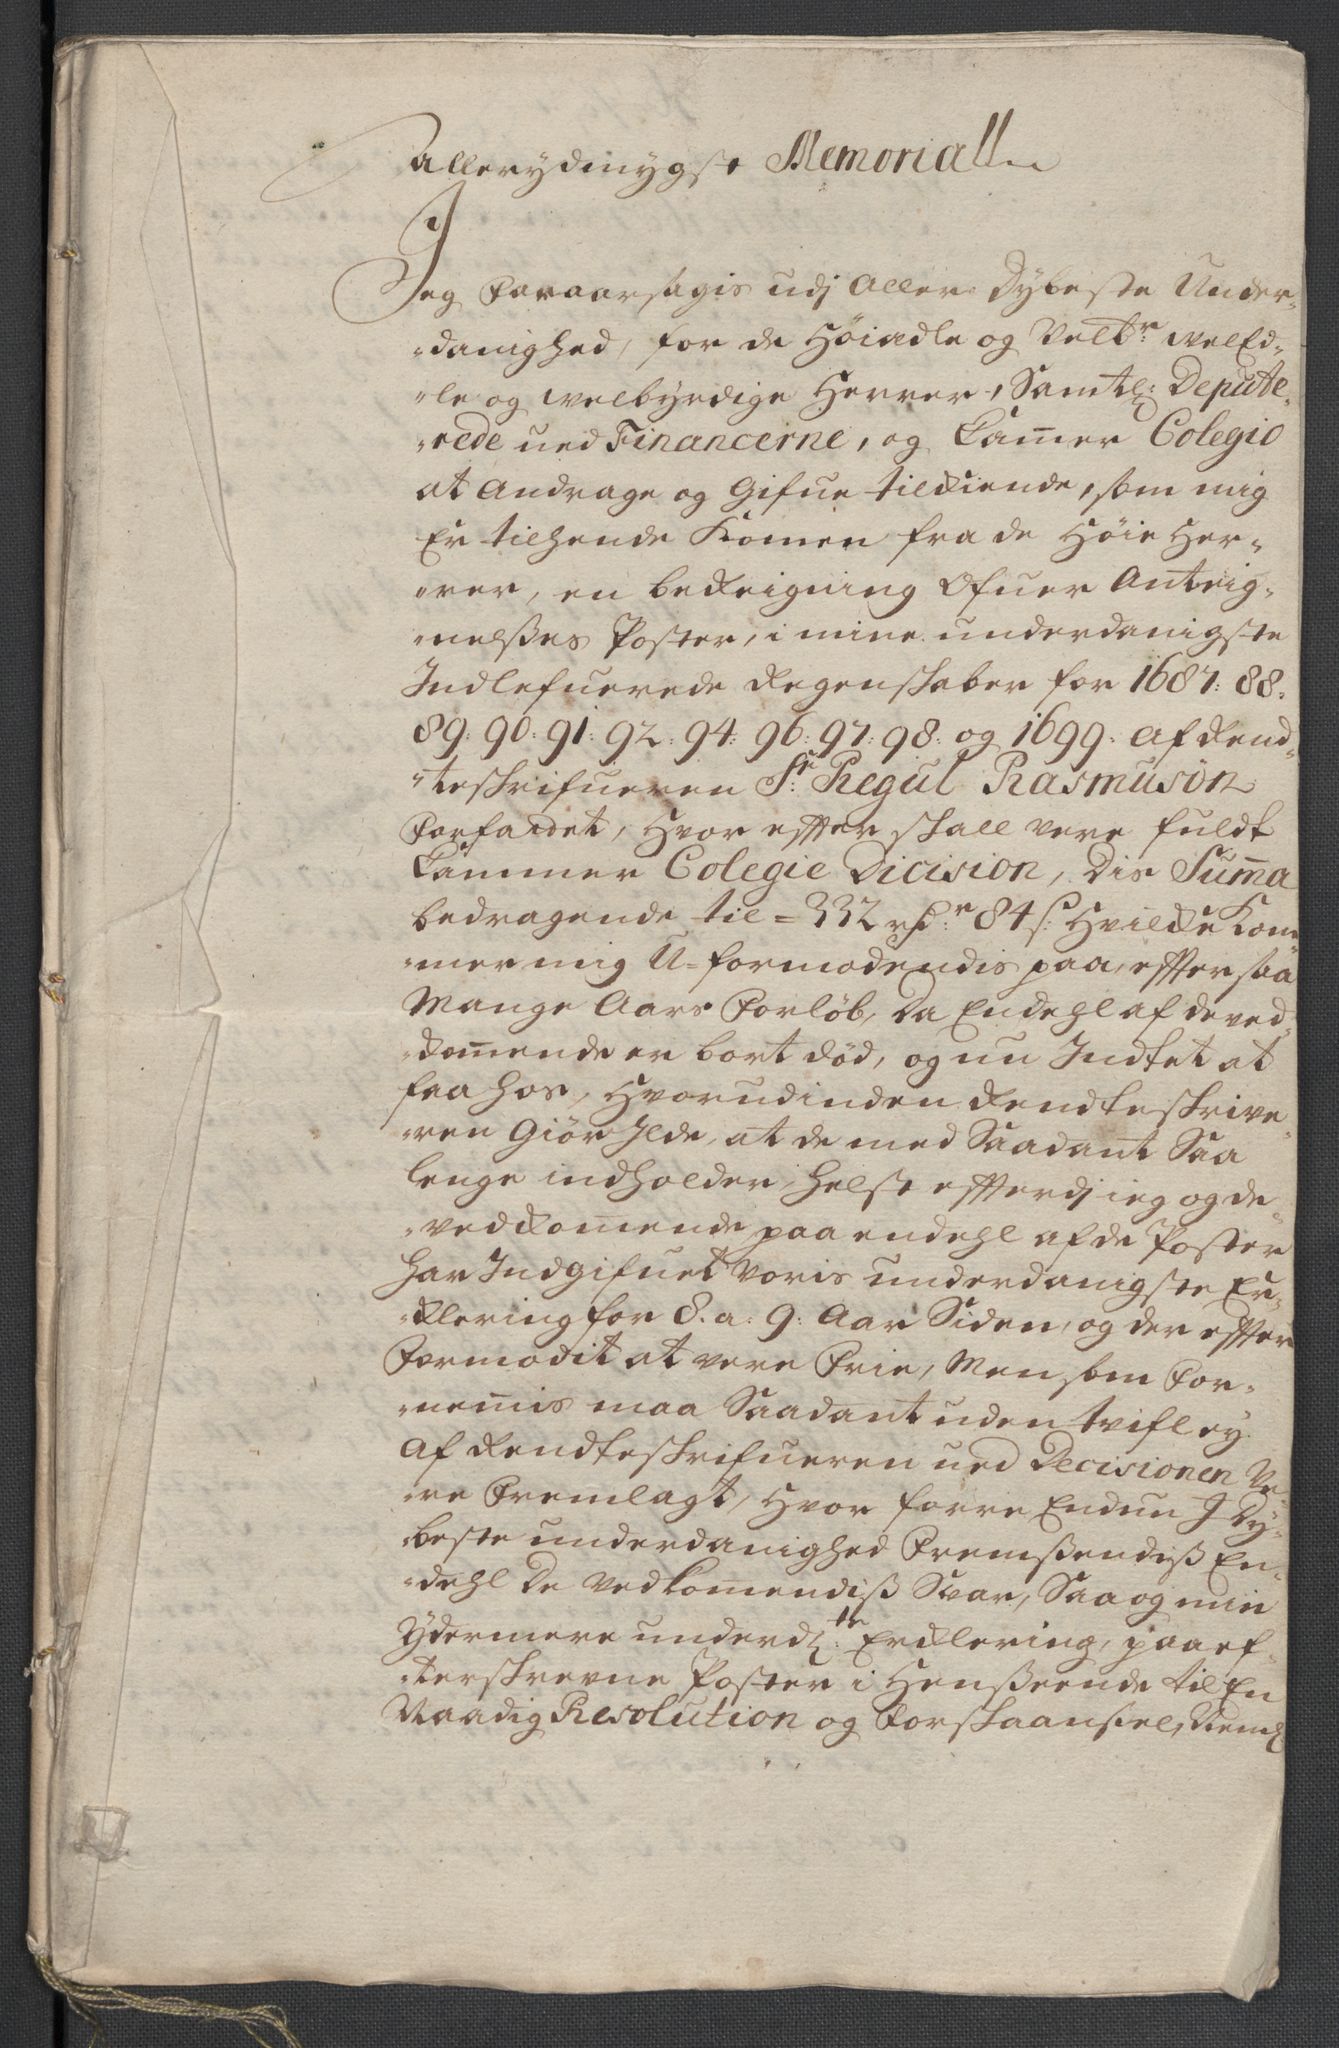 Allerydmygste Memoriall
Jeg Foraarsagis udj Aller Dybeste Under-
danighed, for de Höiædle og Velb:r welEd-
le og welbyrdige Herrer, Samtl: Depute-
rede ued Financerne, og Cam̄er Colegio
at Andrage og Gifue tilkiende, som mig
Er tilhende Komen fra de Höie Her-
rer, en bereigning Ofuer Anteig-
nelßes Poster, i mine underdanigste
Indlefuerede Regenskaber for 1687: 88:
89: 90: 91: 92: 94: 96: 97: 98: og 1699. af Rend-
teskrifueren Sr: Regul Rasmusön
Forfardet, Hvor effter skall vere fuldt
Cammer Colegie Dicision, Dis Sum̄a
bedragende til = 332 rdr 84 s: Hvilke Kom-
mer mig U-formodendis paa, effter saa
Mange Aars Forlöb, Da Endehl af de ved-
kom̄ende er bort död, og nu Indtet at
faa hos, Hvorudinden Rendteskrive-
ren Giör Ilde, at de med Saadant Saa
lenge indholder, helst efftterdj ieg og de
vedkom̄ende paa endehl af de Poster
har Indgifuet voris underdanigste Er-
klering for 8. a: 9: Aar Siden, og der effter
Formodit at vere Frie, Men som For-
nem̄is maa Saadant uden tvifl ey
af Rendteskrifueren ued Decisionen Ve-
re Fremlagt, Hvor forre Endnu J Dy-
beste underdanighed Fremßendiß En-
dehl De Vedkom̄endiß Svar, Saa og min
Ydermere underd:te Erklering, paa ef-
terskrevne Poster i Henßeende til En
Naadig Resolution og Forskaansel, Neml